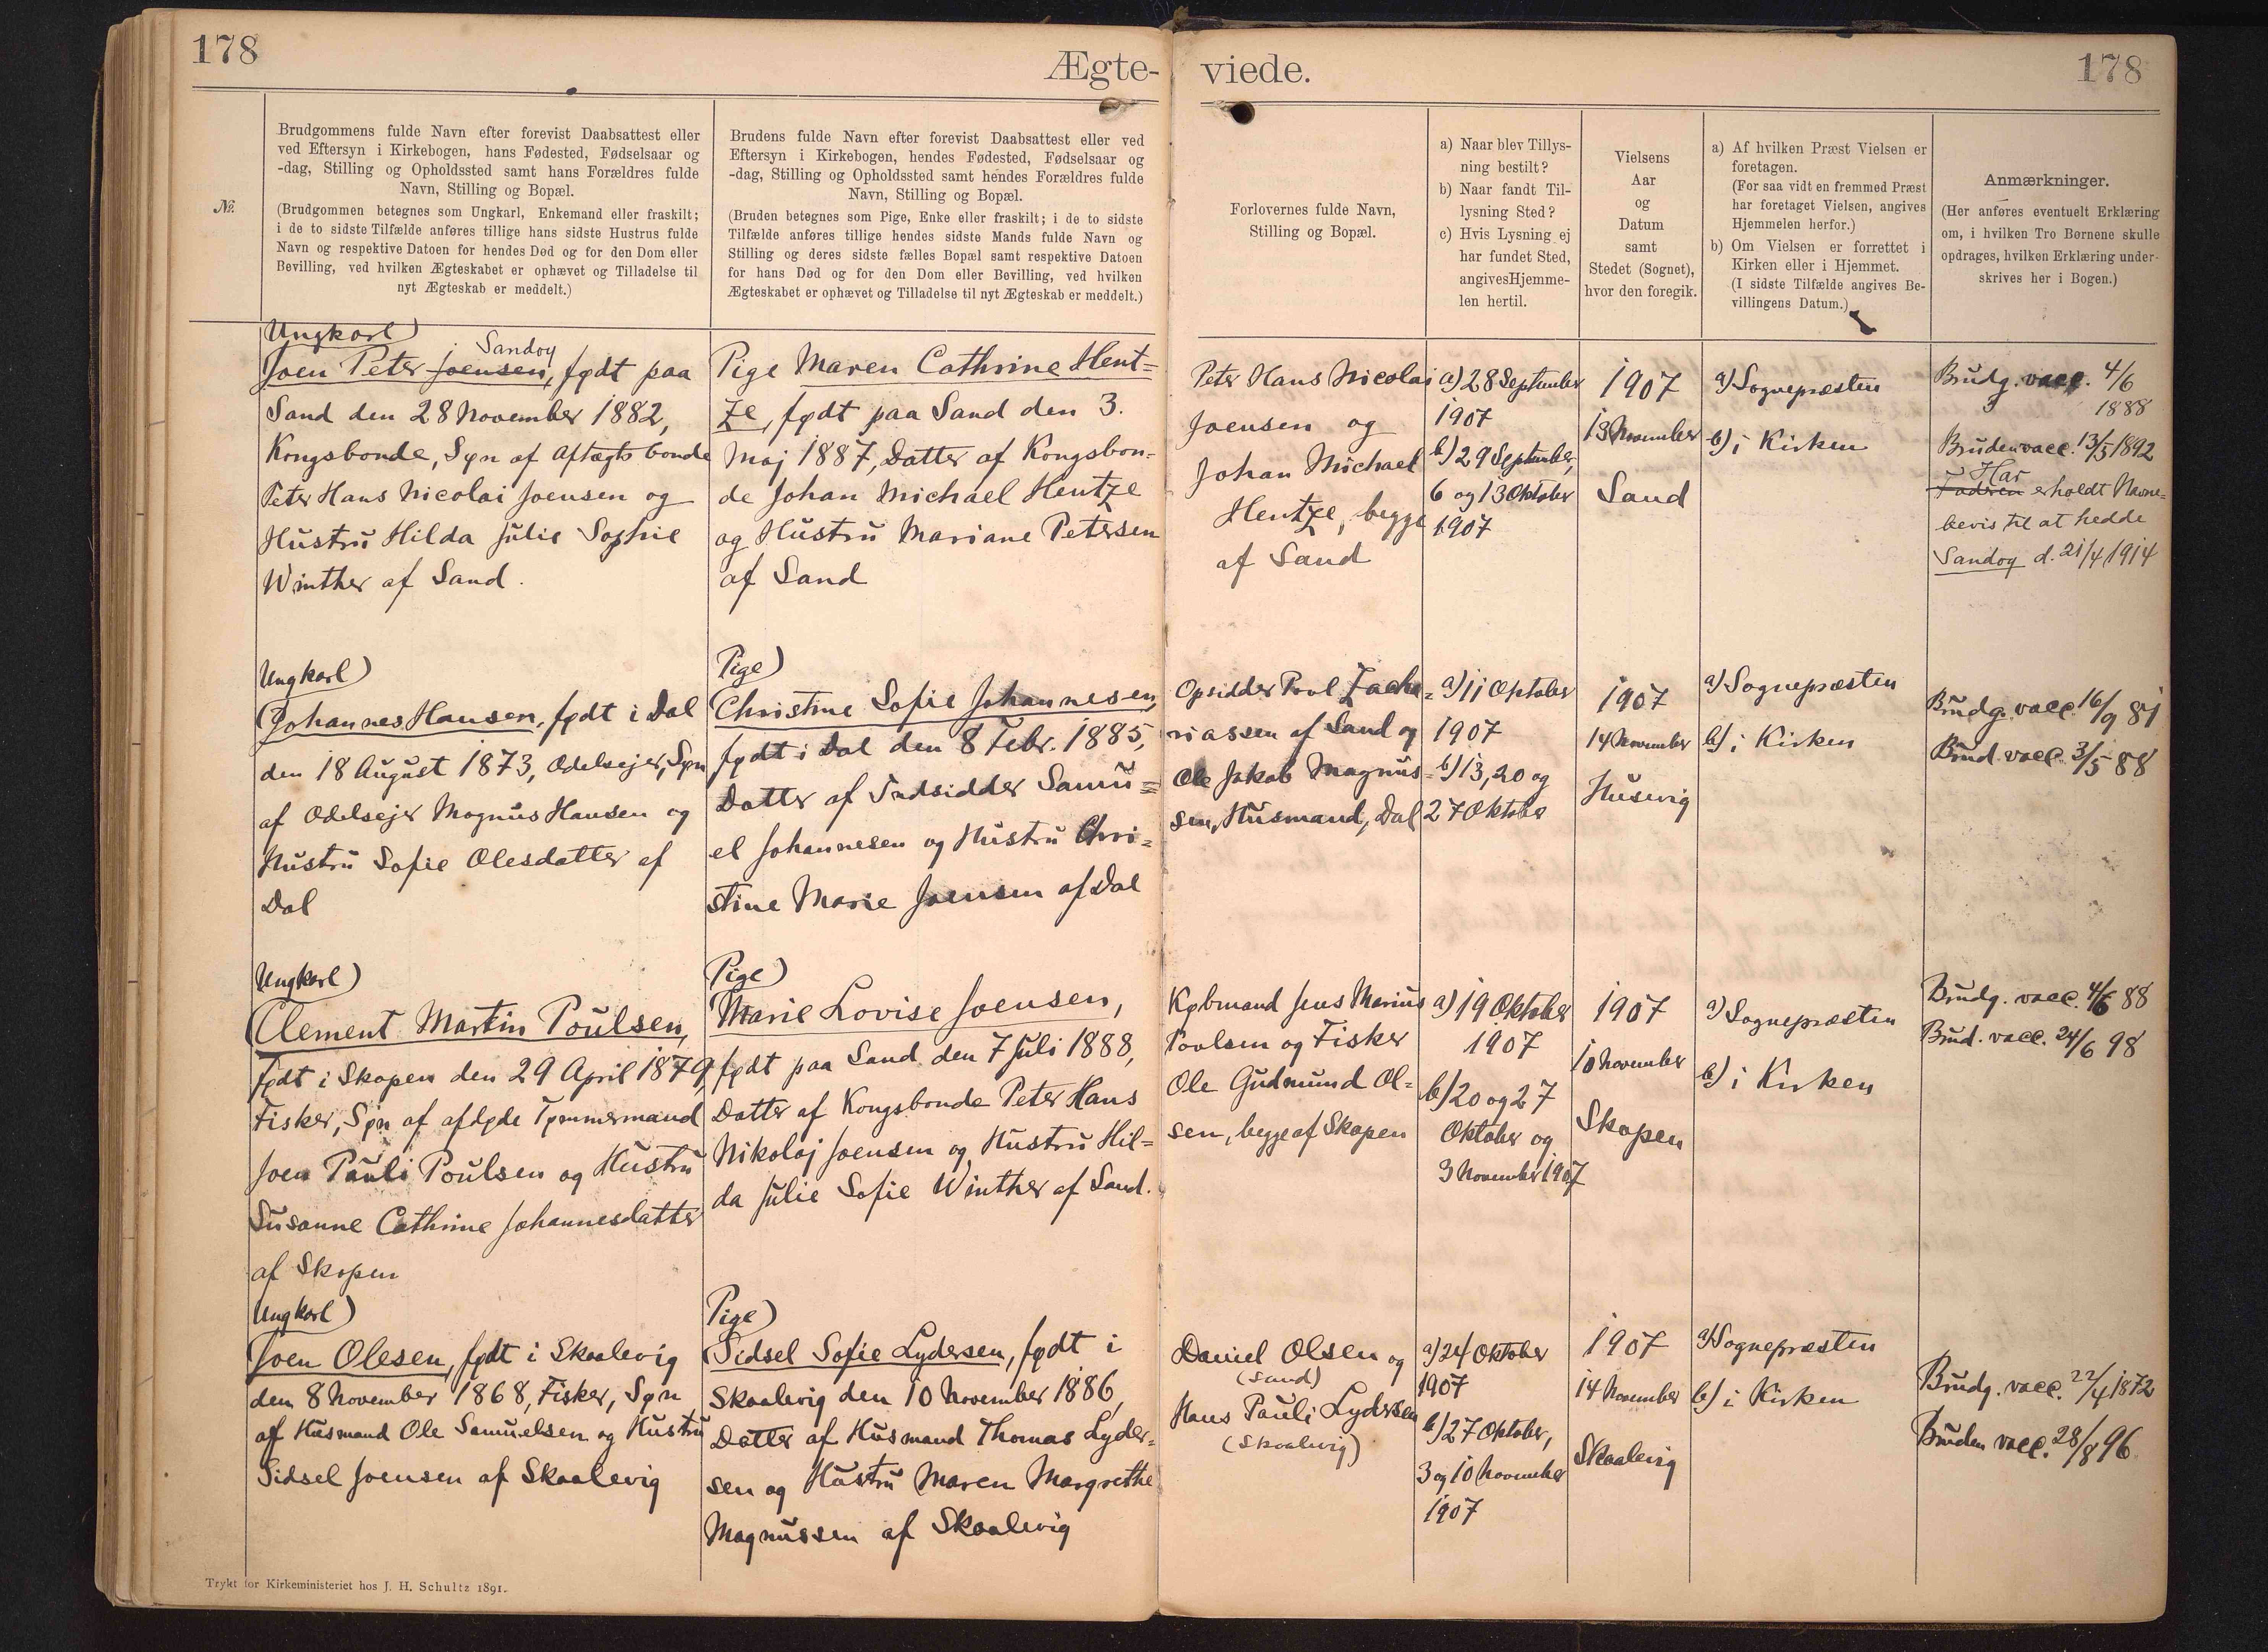 178
Ægte-
viede.
178
№.
Brudgommens fulde Navn efter forevist Daabsattest eller
ved Eftersyn i Kirkebogen, hans Fødested, Fødselsaar og
-dag, Stilling og Opholdssted samt hans Forældres fulde
Navn, Stilling og Bopæl.
(Brudgommen betegnes som Ungkarl, Enkemand eller fraskilt;
i de to sidste Tilfælde anføres tillige hans sidste Hustrus fulde
Navn og respektive Datoen for hendes Død og for den Dom eller
Bevilling, ved hvilken Ægteskabet er ophævet og Tilladelse til
nyt Ægteskab er meddelt.)
Brudens fulde Navn efter forevist Daabsattest eller ved
Eftersyn i Kirkebogen, hendes Fødested, Fødselsaar og
-dag, Stilling og Opholdssted samt hendes Forældres fulde
Navn, Stilling og Bopæl.
(Bruden betegnes som Pige, Enke eller fraskilt; i de to sidste
Tilfælde anføres tillige hendes sidste Mands fulde Navn og
Stilling og deres sidste fælles Bopæl samt respektive Datoen
for hans Død og for den Dom eller Bevilling, ved hvilken
Ægteskabet er ophævet og Tilladelse til nyt Ægteskab er meddelt.)
Forlovernes fulde Navn,
Stilling og Bopæl.
a) Naar blev Tillys-
ning bestilt?
b) Naar fandt Til-
lysning Sted?
c) Hvis Lysning ej
har fundet Sted,
angives Hjemme-
len hertil.
Vielsens
Aar
og
Datum
samt
Stedet (Sognet),
hvor den foregik.
a) Af hvilken Præst Vielsen er
foretagen.
(For saa vidt en fremmed Præst
har foretaget Vielsen, angives
Hjemmelen herfor.)
b) Om Vielsen er forrettet i
Kirken eller i Hjemmet.
(I sidste Tilfælde angives Be-
villingens Datum.)
Anmærkninger.
(Her anføres eventuelt Erklæring
om, i hvilken Tro Børnene skulle
opdrages, hvilken Erklæring under-
skrives her i Bogen.)
Ungkarl)
Sandoy
Joen Peter Joensen, født paa
Sand den 28 November 1882,
Kongsbonde, Søn af Aftægtsbonde
Peter Hans Nicolai Joensen og
Hustru Hilda Julie Sophie
Winther af Sand.
Pige Maren Cathrine Hent=
ze, født paa Sand den 3.
Maj 1887, Datter af Kongsbon=
de Johan Michael Hentze
og Hustru Mariane Petersen
af Sand
Peter Hans Nicolai
Joensen og
Johan Michael
Hentze, begge
af Sand
a) 28 September
1907
b) 29 September,
6 og 13 Oktober
1907
1907
13 November
Sand
a) Sognepræsten
b) i Kirken
Brudg. vacc. 4/6
1888
Bruden vacc. 13/5 1892
Har
Faderen erholdt Navne=
bevis til at hedde
Sandoy d. 21/4 1914
Ungkarl)
Johannes Hansen, født i Dal
den 18 August 1873, Odelsejer, Søn
af Odelsejer Magnus Hansen og
Hustru Sofie Olesdatter af
Dal
Pige)
Christine Sofie Johannesen,
født i Dal den 8 Febr. 1885,
Datter af Indsidder Samu=
el Johannesen og Hustru Chri=
stine Marie Joensen af Dal
Opsidder Poul Zacha=
riassen af Sand og
Ole Jakob Magnus=
sen, Husmand, Dal
a) 11 Oktober
1907
b) 13, 20 og
27 Oktober
1907
14 November
Husevig
a) Sognepræsten
b) i Kirken
Brudg. vacc. 16/9 81
Brud. vacc. 3/5 88
Ungkarl)
Clement Martin Poulsen,
født i Skopen den 29 April 1879,
Fisker, Søn af afdøde Tømmermand
Joen Pauli Poulsen og Hustru
Susanne Cathrine Johannesdatter
af Skopen
Pige)
Marie Lovise Joensen,
født paa Sand den 7 Juli 1888,
Datter af Kongsbonde Peter Hans
Nikolaj Joensen og Hustru Hil=
da Julie Sofie Winther af Sand.
Købmand Jens Marius
Poulsen og Fisker
Ole Gudmund Ol=
sen, begge af Skopen
a) 19 Oktober
1907
b) 20 og 27
Oktober og
3 November 1907
1907
10 November
Skopen
a) Sognepræsten
b) i Kirken
Brudg. vacc. 4/6 88
Brud. vacc. 24/6 98
Ungkarl)
Joen Olesen, født i Skaalevig
den 8 November 1868, Fisker, Søn
af Husmand Ole Samuelsen og Hustru
Sidsel Joensen af Skaalevig
Pige)
Sidsel Sofie Lydersen, født i
Skaalevig den 10 November 1886,
Datter af Husmand Thomas Lyder=
sen og Hustru Maren Margrethe
Magnussen af Skaalevig
Daniel Olsen og
(Sand)
Hans Pauli Lydersen
(Skaalevig)
a) 24 Oktober
1907
b) 27 Oktober,
3 og 10 November
1907
1907
14 November
Skaalevig
a) Sognepræsten
b) i Kirken
Brudg. vacc. 22/4 1872
Bruden vacc. 28/8 96
Trykt for Kirkeministeriet hos J. H. Schultz 1891.